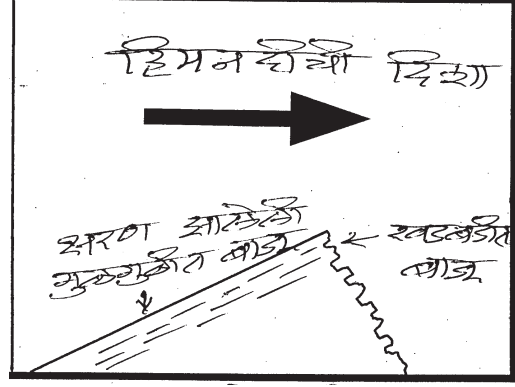 हिमनदीची दिशा
क्षरण झालेली
गुळगुळीत बाजू
खडबडीत
बाजू